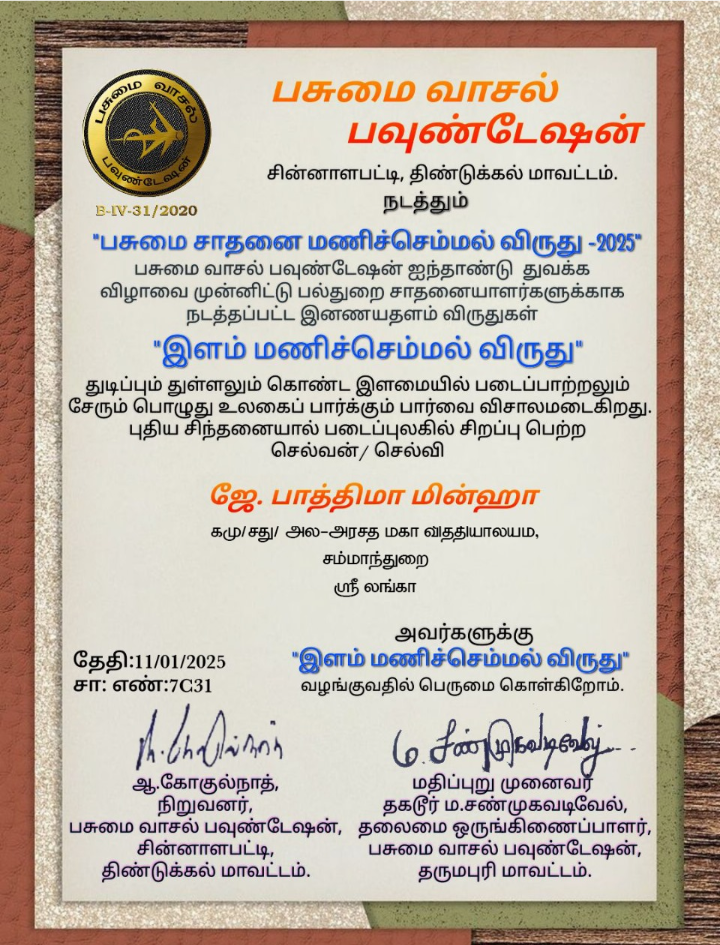 பசுமை வாசல்
பவுண்டேஷன்
பசுமை வாசல்
பவுண்டேஷன்
B-IV-31/2020
சின்னாளபட்டி, திண்டுக்கல் மாவட்டம்.
நடத்தும்
"பசுமை சாதனை மணிச்செம்மல் விருது -2025"
பசுமை வாசல் பவுண்டேஷன் ஐந்தாண்டு துவக்க
விழாவை முன்னிட்டு பல்துறை சாதனையாளர்களுக்காக
நடத்தப்பட்ட இனணயதளம் விருதுகள்
"இளம் மணிச்செம்மல் விருது"
துடிப்பும் துள்ளலும் கொண்ட இளமையில் படைப்பாற்றலும்
சேரும் பொழுது உலகைப் பார்க்கும் பார்வை விசாலமடைகிறது.
புதிய சிந்தனையால் படைப்புலகில் சிறப்பு பெற்ற
செல்வன்/ செல்வி
ஜே. பாத்திமா மின்ஹா
கமு/சது/ அல-அரசத மகா வித்தியாலயம,
சம்மாந்துறை
ஸ்ரீ லங்கா
அவர்களுக்கு
"இளம் மணிச்செம்மல் விருது"
வழங்குவதில் பெருமை கொள்கிறோம்.
தேதி:11/01/2025
சா: எண்:7C31
ம. சண்முகவடிவேல்
ஆ.கோகுல்நாத்,
நிறுவனர்,
பசுமை வாசல் பவுண்டேஷன்,
சின்னாளபட்டி,
திண்டுக்கல் மாவட்டம்.
மதிப்புறு முனைவர்
தகடூர் ம.சண்முகவடிவேல்,
தலைமை ஒருங்கிணைப்பாளர்,
பசுமை வாசல் பவுண்டேஷன்,
தருமபுரி மாவட்டம்.